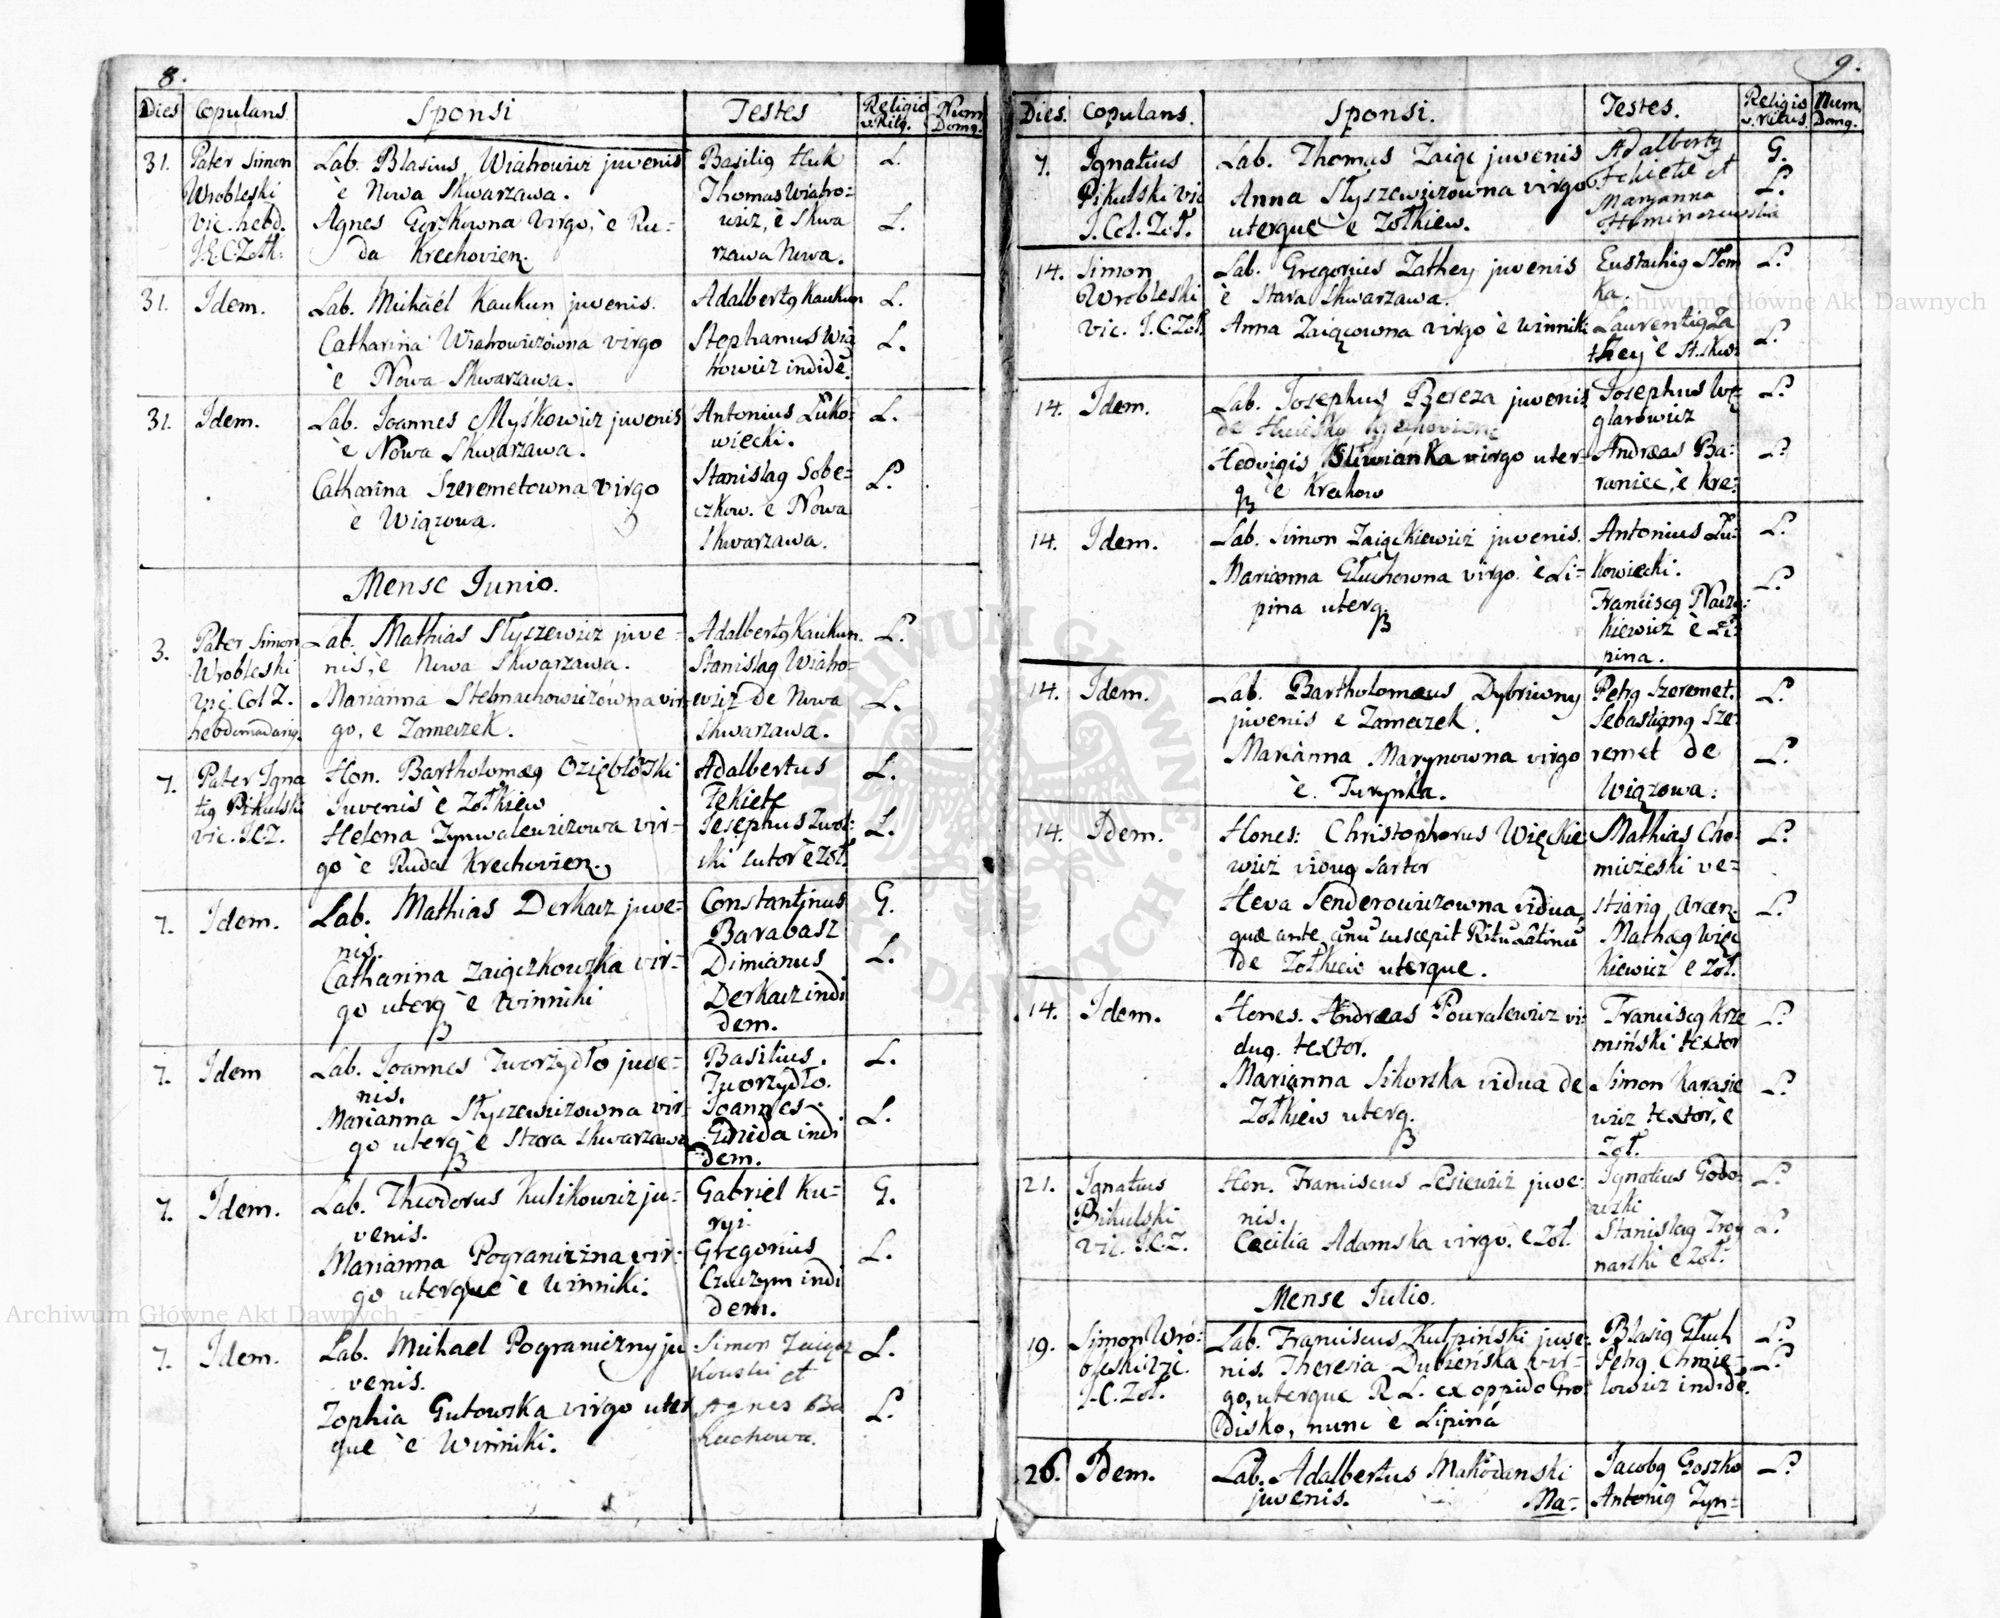 8.
Dies Copulans. Sponsi Testes Religio v. Ritq. Num Domq.
31. Pater Simon Wrobleski vic. hebd. I.E.C. Zołk.
Lab. Blasius Wiatrowicz juvenis
è Nowa Skwarzawa.
Agnes Gyrzkowna Virgo, è Ru-
da Krechovien.
Basiliq Huk
Thomas Wiatro-
wicz, è Skwa
rzawa Nowa.
L.
L.
31. Idem.
Lab. Michaël Kaukun juvenis.
Catharina Wiatrowiczówna virgo
è Nowa Skwarzawa.
Adalbertq Kaukun
Stephanus Wia
trowicz indidē.
L.
L.
31. Idem.
Lab. Joannes Myśkowicz juvenis
è Nowa Skwarzawa.
Catharina Szeremetowna virgo
è Wiązowa.
Antonius Łuko-
wiecki.
Stanislaq Sobe-
czkow. è Nowa
Skwarzawa.
L.
L.
Mense Junio.
3. Pater Simon
Wrobleski
vic. Col Z.
hebdomadariq.
Lab. Mathias Słyszewicz juve-
nis, è Nowa Skwarzawa.
Marianna Stelmachowiczówna vir-
go, e Zameczek.
Adalbertq Kaukun.
Stanislaq Wiatro-
wicz de Nowa
Skwarzawa.
L.
L.
7. Pater Igna
tiq Pikulski
vic. I.C.Z.
Hon. Bartholomæq Oziębłoski
Juvenis è Zołkiew
Helena Zynwalewiczowa vir-
go è Ruda Krechovien.
Adalbertus
Tekiele
Josephus Zwol:
ski sutor è Zoł.
L.
L.
7. Idem.
Lab. Mathias Derkacz juve-
nis.
Catharina Zaięczkowska vir-
go uterq è Winniki
Constantinus
Barabasz
Dimianus
Derkacz indi
dem.
G.
L.
7. Idem
Lab. Joannes Tworzydło juve-
nis.
Marianna Słyszewiczowna vir-
go uterq è Stara Skwarzawa
Basilius.
Tworzydło.
Joannes
Gnida indi
dem.
L.
L.
7. Idem.
Lab. Theodorus Kulikowicz ju-
venis.
Marianna Pograniczna vir-
go uterque è Winniki.
Gabriel Ku-
ryi.
Gregorius
Czuczym indi
dem.
G.
L.
7. Idem.
Lab. Michael Pograniczny ju
venis.
Zophia Gutowska virgo uter
que è Winniki.
Simon Zaięcz
kowski et
Agnes Ba
kachowa.
L.
L.
9.
Dies. Copulans. Sponsi. Testes. Religio v. ritus. Num Domq.
7. Ignatius
Pikulski vic
I. Col. Zoł.
Lab. Thomas Zaięc juvenis
Anna Słyszewiczowna virgo
uterque è Zołkiew.
Adalberty
Tekiele et
Maryanna
G.
L.
14. Simon
Wrobleski
vic. I.C.Zoł.
Lab. Gregorius Zathey juvenis
è Stara Skwarzawa.
Anna Zaięcowna virgo è Winniki
Eustachiq Słom
ka.
Laurentiq Za
they è St. Skw:
L.
L.
14. Idem.
Lab. Josephus Bereza juvenis
de Huisko
Hedvigis Sliwianka virgo uter-
q è Krechow
Josephus Wę
glarowicz
Andræas Ba-
raniec, è Kre:
L.
L.
14. Idem.
Lab. Simon Zaięckiewicz juvenis.
Marianna Głuchowna virgo è Li-
pina uterq.
Antonius Łu-
kowiecki.
Franciscq Naizy:
kiewicz è Li-
pina.
L.
L.
14. Idem.
Lab. Bartholomæus Dybriwny
juvenis e Zameczek.
Marianna Marynowna virgo
è Turynka.
Petrq Szeremet.
Sebastianq Sze-
remet de
Wiązowa.
L.
L.
14. Idem.
Hones: Christophorus Więckie
wicz viduq Sartor
Heva Senderowiczowna vidua,
quæ ante anū suscepit Ritū Latinū
de Zołkiew uterque.
Mathias Cho-
miczeski ve-
stiariq Arcen.
Mathæq Więc
kiewicz è Zoł.
L.
L.
14. Idem.
Hones. Andræas Pouralewicz vi-
duq. textor.
Marianna Sikorska vidua de
Zołkiew uterq.
Franciscq Krze
miński textor
Simon Karasie
wicz textor, è
Zoł.
L.
L.
21. Ignatius
Pikulski
vic. I.C.Z.
Hon. Franciscus Lesiewicz juve-
nis.
Cæcilia Adamska virgo. è Zoł.
Ignatius Godo-
wski
Stanislaq Troy
narski è Zoł.
L.
L.
Mense Julio.
19. Simon Wró-
bleski vi.
I.C.Zoł.
Lab. Franciscus Kulpiński juve-
nis. Theresia Dubieńska vir-
go, uterque R.L. ex oppido Gro
disko, nunc è Lipina
Blasiq Głuch
Petrq Chmie-
lowicz indidē.
L.
L.
26. Idem.
Lab. Adalbertus Makodanski
juvenis. Ma-
Jacobq Goszko
Antoniq Zyn-
L.
Archiwum Główne Akt Dawnych
Archiwum Główne Akt Dawnych
ARCHIWUM GŁÓWNE AKT DAWNYCH